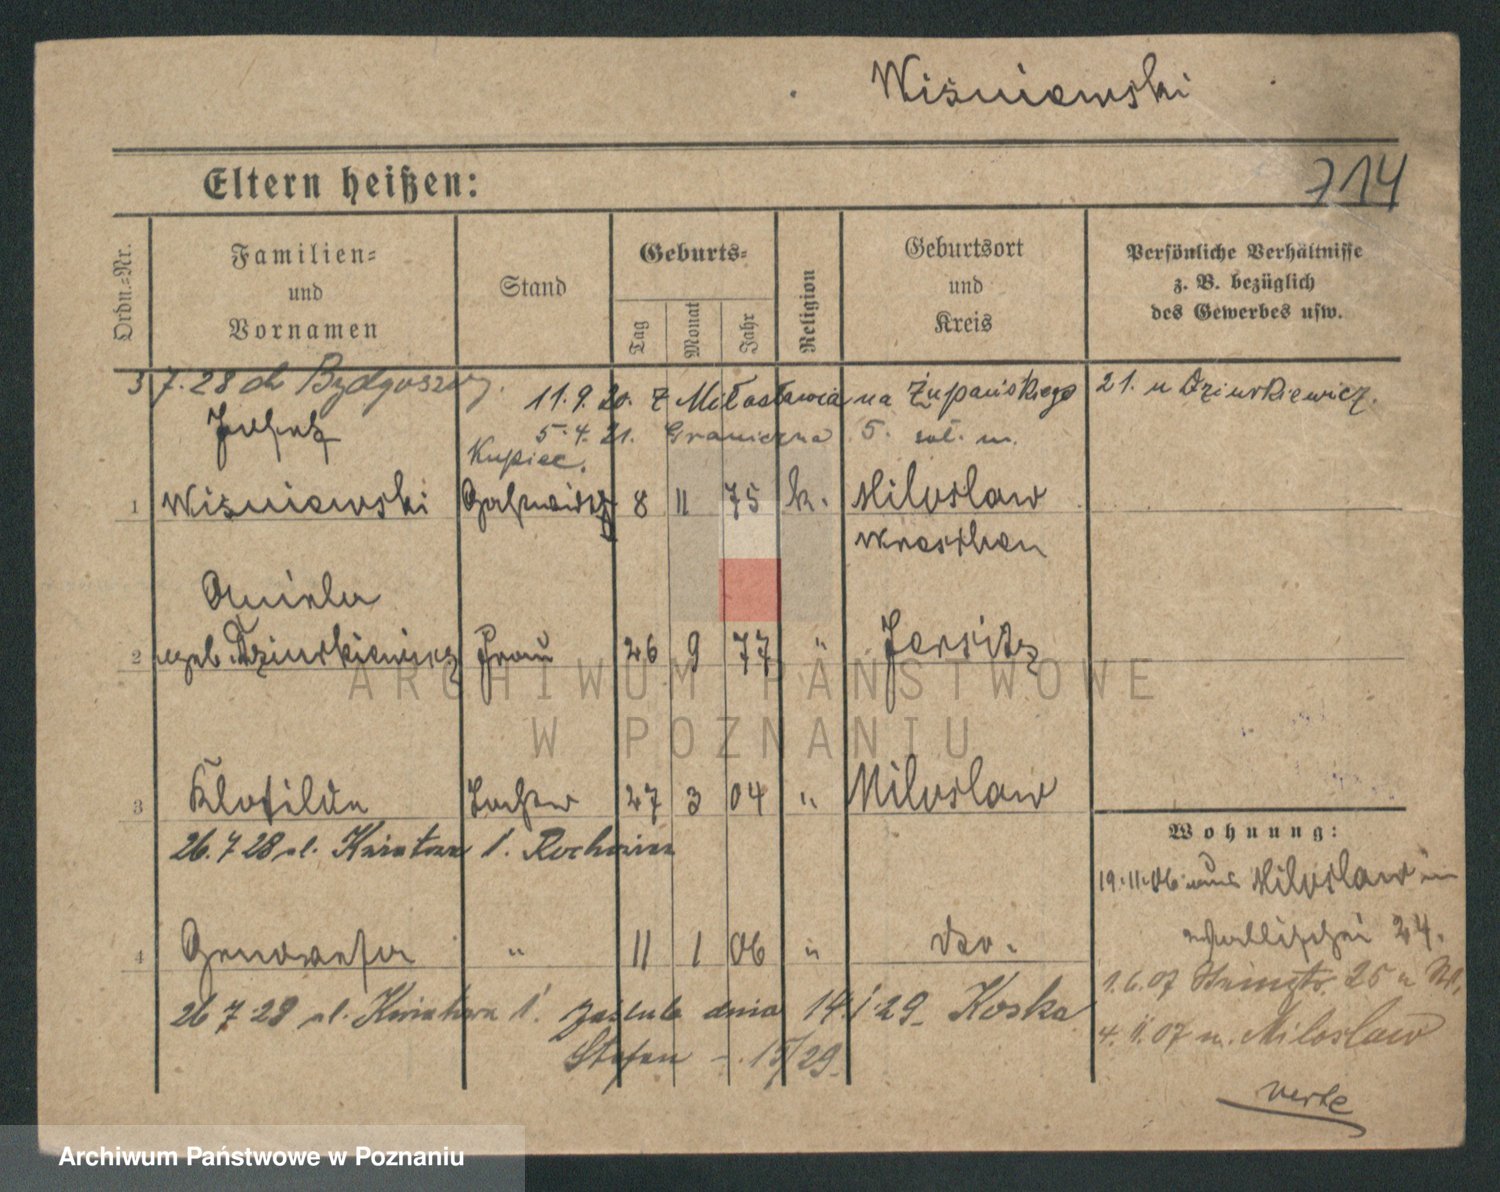 Wiśniewski
714
Eltern heißen:
Ordn.-Nr.
Familien-
und
Vornamen
Stand
Geburts-
Tag
Monat
Jahr
Religion
Geburtsort
und
Kreis
Persönliche Verhältnisse
z. B. bezüglich
des Gewerbes usw.
3 7. 28 do Bydgoszczy.
11. 9. 20. z Miłosławia na Żupańskiego 21. u Dziurkiewicz.
5. 4. 21. Graniczna 5. m.
Josef
Kupiec.
1 Wiśniewski Gastwirth 8 11 75 k. Miloslaw
Wreschen
Aniela
2 geb. Dziurkiewicz Frau 26 9 77 " Jersitz
3 Klotilde Tochter 27 3 04 " Miloslaw
26. 7 28 ul. Kwiatowa 1.
Wohnung:
19. 11. 06 aus Miloslaw in
Wallischei 24.
4 Genowefa " 11 1 06 " dto.
1. 6. 07 25
26 7 28 ul. Kwiatowa 1. zaślub. dnia 14 1 29 Koska
Stefan 15/29
4. 11. 07 n. Miloslaw
verte
ARCHIWUM PAŃSTWOWE
W POZNANIU
Archiwum Państwowe w Poznaniu